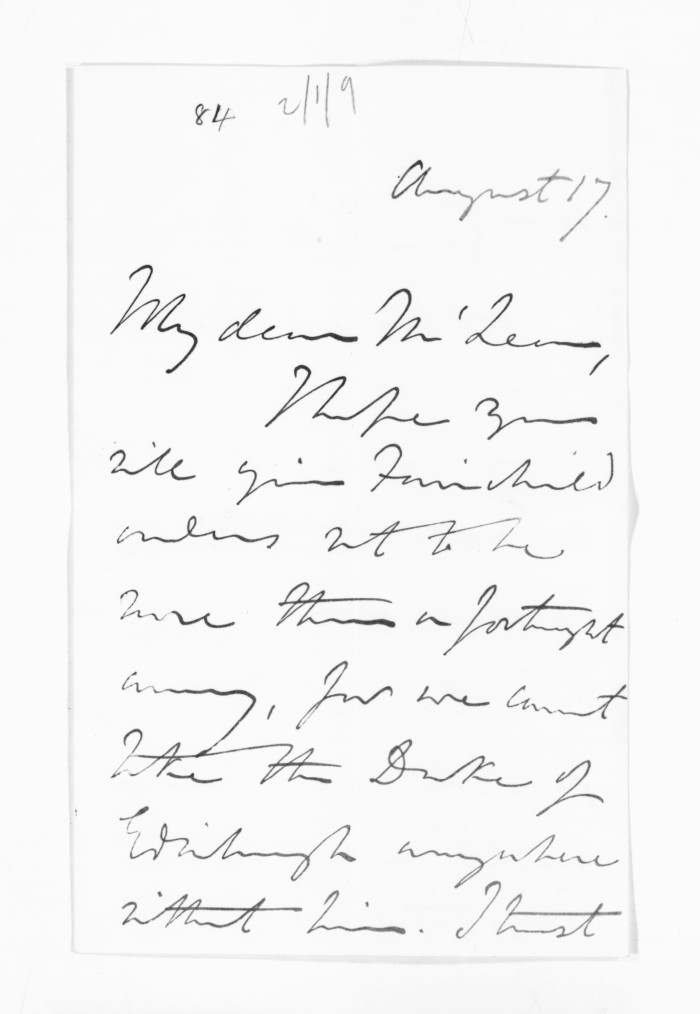 84 2/1/9
August 17.
My dear McLean,
I hope you
will give Fairchild
orders not to be
more than a fortnight
away, for we cannot
take the Duke of
Edinburgh anywhere
without him. I trust